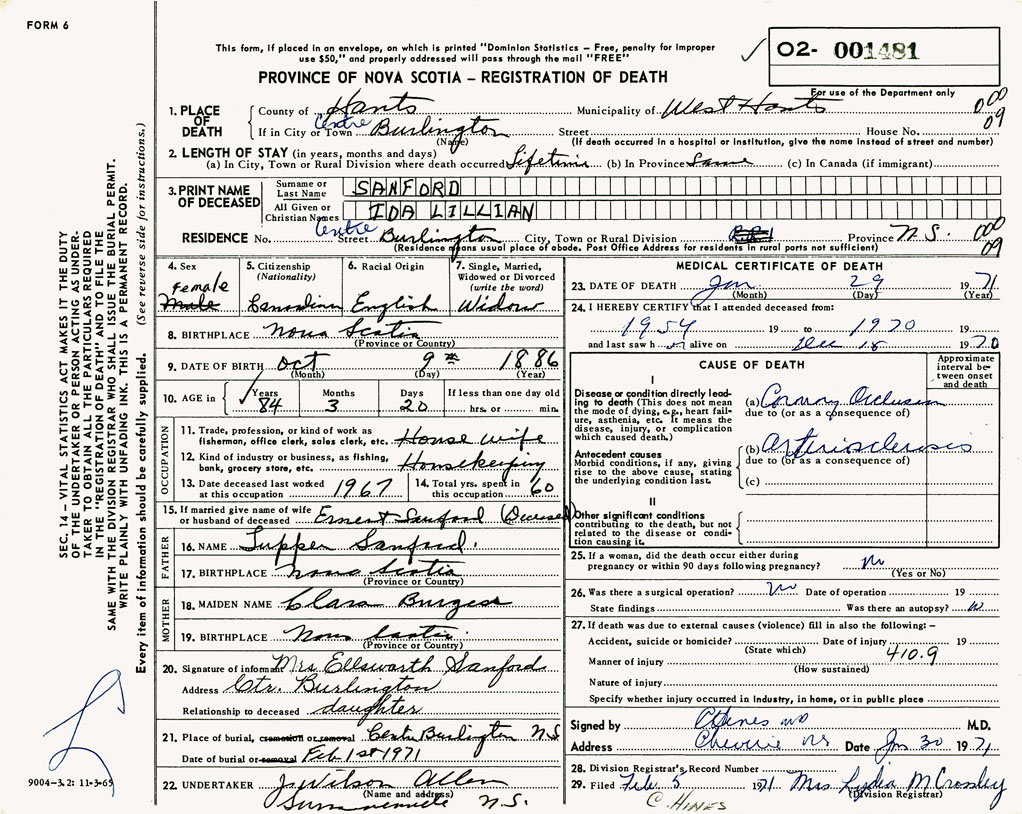 FORM 6
This form, if placed in an envelope, on which is printed "Dominion Statistics – Free, penalty for improper
use $50," and properly addressed will pass through the mail "FREE"
✓ 02- 001481
PROVINCE OF NOVA SCOTIA – REGISTRATION OF DEATH
For use of the Department only
1. PLACE OF DEATH County of Hants Municipality of West Hants 000
If in City or Town Centre Burlington Street House No. 09
(Name) (If death occurred in a hospital or institution, give the name instead of street and number)
2. LENGTH OF STAY (in years, months and days)
(a) In City, Town or Rural Division where death occurred Lifetime (b) In Province Same (c) In Canada (if immigrant)
3. PRINT NAME OF DECEASED Surname or Last Name SANFORD
All Given or Christian Names IDA LILLIAN
RESIDENCE No. Street Centre Burlington City, Town or Rural Division RR1 Province N.S. 000
09
(Residence means usual place of abode. Post Office Address for residents in rural parts not sufficient)
4. Sex Female Male
5. Citizenship (Nationality) Canadian
6. Racial Origin English
7. Single, Married, Widowed or Divorced (write the word) Widow
8. BIRTHPLACE Nova Scotia
(Province or Country)
9. DATE OF BIRTH Oct 9th 1886
(Month) (Day) (Year)
10. AGE in ✓ Years 84 Months 3 Days 20 If less than one day old hrs. or min.
OCCUPATION
11. Trade, profession, or kind of work as fisherman, office clerk, sales clerk, etc. House wife
12. Kind of industry or business, as fishing, bank, grocery store, etc. Housekeeping
13. Date deceased last worked at this occupation 1967
14. Total yrs. spent in this occupation 60
15. If married give name of wife or husband of deceased Ernest Sanford (Deceased)
FATHER
16. NAME Tupper Sanford.
17. BIRTHPLACE Nova Scotia
(Province or Country)
MOTHER
18. MAIDEN NAME Clara Burgess
19. BIRTHPLACE Nova Scotia
(Province or Country)
20. Signature of informant Mrs Ellsworth Sanford
Address Ctr. Burlington
Relationship to deceased daughter
21. Place of burial, cremation or removal Centre Burlington NS
Date of burial or removal Feb 1st 1971
22. UNDERTAKER J. Wilson Allen
(Name and address)
Summerville N.S.
MEDICAL CERTIFICATE OF DEATH
23. DATE OF DEATH Jan 29 1971
(Month) (Day) (Year)
24. I HEREBY CERTIFY that I attended deceased from:
1954 19 to 1970 19
and last saw h er alive on Dec 18 1970
CAUSE OF DEATH
Approximate interval between onset and death
I
Disease or condition directly leading to death (This does not mean the mode of dying, e.g., heart failure, asthenia, etc. It means the disease, injury, or complication which caused death.)
(a) Coronary Occlusion
due to (or as a consequence of)
Antecedent causes
Morbid conditions, if any, giving rise to the above cause, stating the underlying condition last.
(b) Arteriosclerosis
due to (or as a consequence of)
(c)
II
Other significant conditions contributing to the death, but not related to the disease or condition causing it.
25. If a woman, did the death occur either during
pregnancy or within 90 days following pregnancy? no
(Yes or No)
26. Was there a surgical operation? no Date of operation 19
State findings Was there an autopsy? no
27. If death was due to external causes (violence) fill in also the following: –
Accident, suicide or homicide? Date of injury 19
(State which) 410.9
Manner of injury
(How sustained)
Nature of injury
Specify whether injury occurred in industry, in home, or in public place
Signed by C Hines MD M.D.
Address Cheverie NS Date Jan 30 1971
28. Division Registrar's Record Number
29. Filed Feb. 5 1971 Mrs Lydia M Crossley
(Division Registrar)
C. HINES
SEC. 14 – VITAL STATISTICS ACT MAKES IT THE DUTY
OF THE UNDERTAKER OR PERSON ACTING AS UNDER-
TAKER TO OBTAIN ALL THE PARTICULARS REQUIRED
IN THE "REGISTRATION OF DEATH" AND TO FILE THE
SAME WITH THE DIVISION REGISTRAR WHO SHALL ISSUE THE BURIAL PERMIT.
WRITE PLAINLY WITH UNFADING INK. THIS IS A PERMANENT RECORD.
Every item of information should be carefully supplied. (See reverse side for instructions.)
9004-3.2: 11-3-65